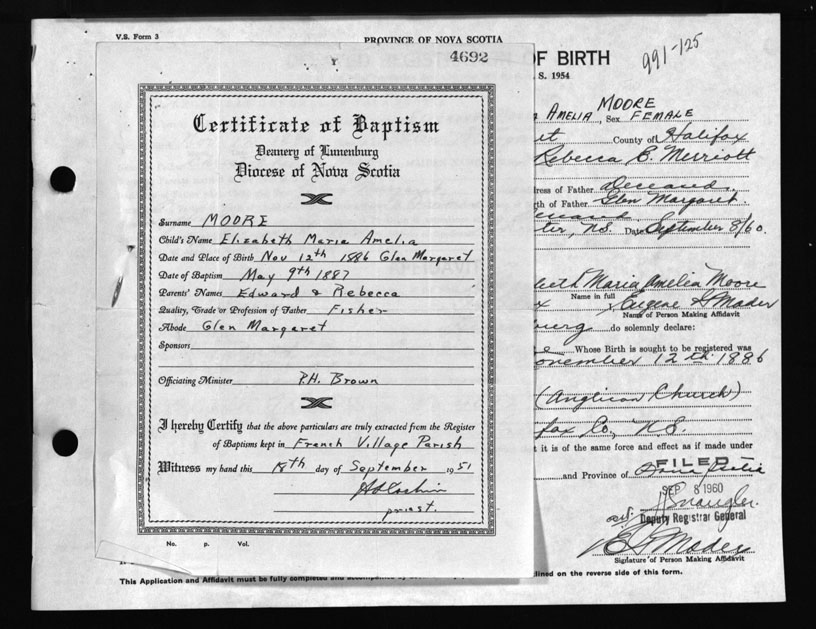 V.S. Form 3
PROVINCE OF NOVA SCOTIA
4692
Certificate of Baptism
Deanery of Lunenburg
Diocese of Nova Scotia
Surname MOORE
Child's Name Elizabeth Maria Amelia
Date and Place of Birth Nov 12th 1886 Glen Margaret
Date of Baptism May 9th 1887
Parents' Names Edward & Rebecca
Quality, Trade or Profession of Father Fisher
Abode Glen Margaret
Sponsors
Officiating Minister P.H. Brown
I hereby Certify that the above particulars are truly extracted from the Register
of Baptisms kept in French Village Parish
Witness my hand this day of September 1951
priest.
No. P. Vol.
This Application and Affidavit must be fully completed and
OF BIRTH
991-125
S. 1954
MOORE
AMELIA, Sex FEMALE
et County of Halifax
Rebecca B. Merriott
ress of Father deceased
th of Father Glen Margaret.
ter, N.S. Date September 8/60.
beth Maria Amelia Moore
Name in full
Eugene S Mader
Name of Person Making Affidavit
burg do solemnly declare:
Whose Birth is sought to be registered was
ovember 12th 1886
(Anglican Church)
fax Co., N.S.
t it is of the same force and effect as if made under
FILED
and Province of Nova Scotia
SEP 8 1960
Deputy Registrar General
E S Mader
Signature of Person Making Affidavit
lined on the reverse side of this form.